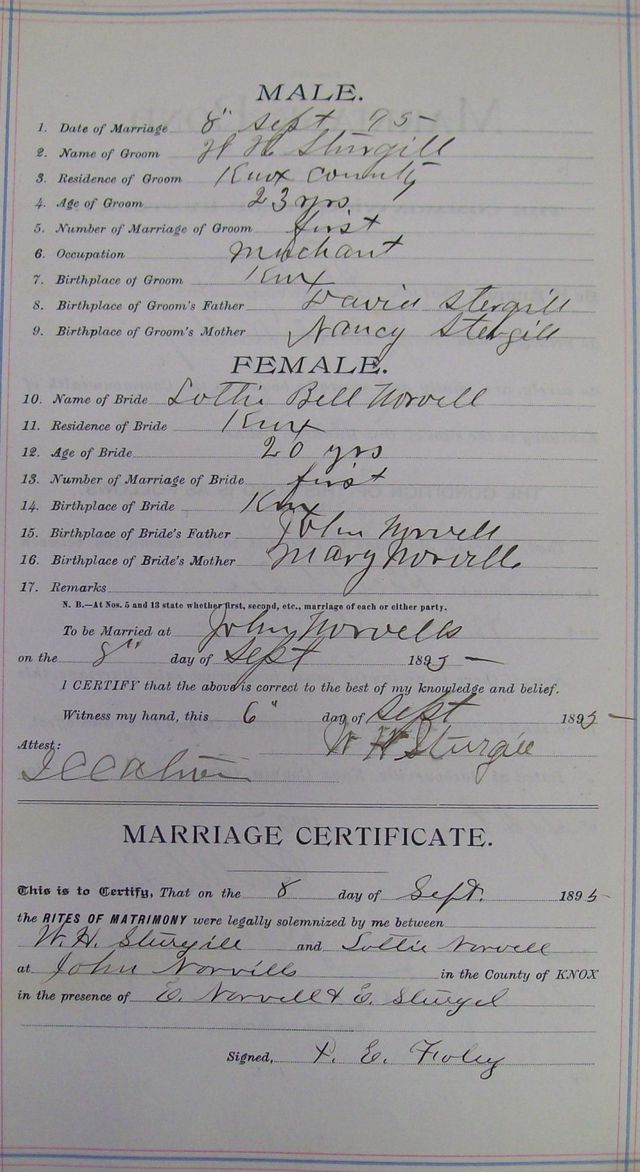 MALE.
1. Date of Marriage 8" Sept 95
2. Name of Groom W H Sturgill
3. Residence of Groom Knox County
4. Age of Groom 23 yrs
5. Number of Marriage of Groom first
6. Occupation Merchant
7. Birthplace of Groom Knox
8. Birthplace of Groom's Father David Stergill
9. Birthplace of Groom's Mother Nancy Stergill
FEMALE.
10. Name of Bride Lottie Bell Norvell
11. Residence of Bride Knox
12. Age of Bride 20 yrs
13. Number of Marriage of Bride first
14. Birthplace of Bride Knox
15. Birthplace of Bride's Father John Norvell
16. Birthplace of Bride's Mother Mary Norvell
17. Remarks
N. B.—At Nos. 5 and 13 state whether first, second, etc., marriage of each or either party.
To be Married at John Norvells
on the 8" day of Sept 1895
I CERTIFY that the above is correct to the best of my knowledge and belief.
Witness my hand, this 6" day of Sept 1895
W H Sturgill
Attest:
MARRIAGE CERTIFICATE.
This is to Certify, That on the 8 day of Sept. 1895
the RITES OF MATRIMONY were legally solemnized by me between
W. H. Sturgill and Lottie Norvell
at John Norvills in the County of KNOX
in the presence of E. Norvell & E. Sturgel
Signed, E. Foley